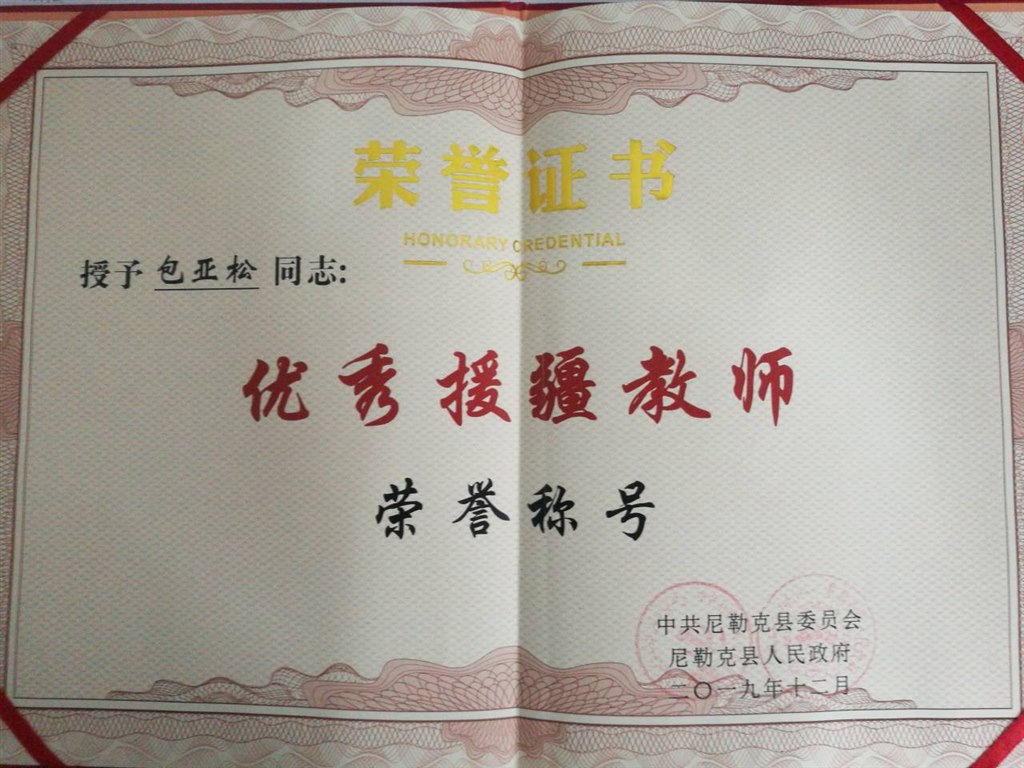 荣誉证书
HONORARY CREDENTIAL
授予 包亚松 同志:
优秀援疆教师
荣誉称号
中共尼勒克县委员会
尼勒克县人民政府
二〇一九年十二月